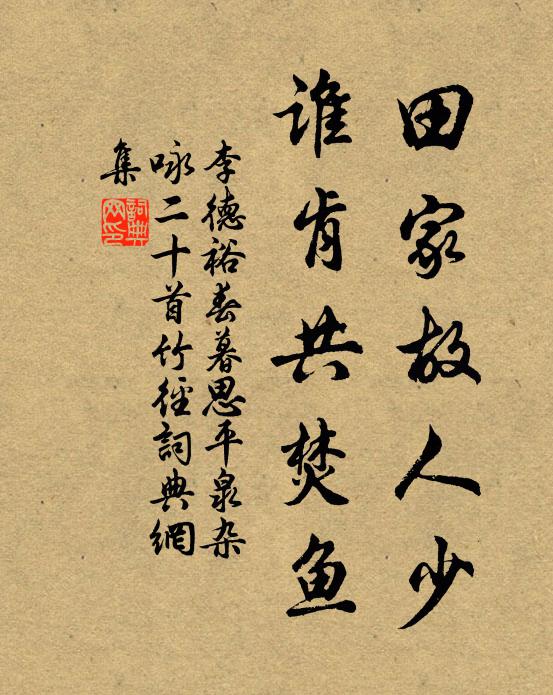 田家故人少
谁肯共焚鱼
李德裕春暮思平泉杂
咏二十首竹径詞典網
集
詞典网印